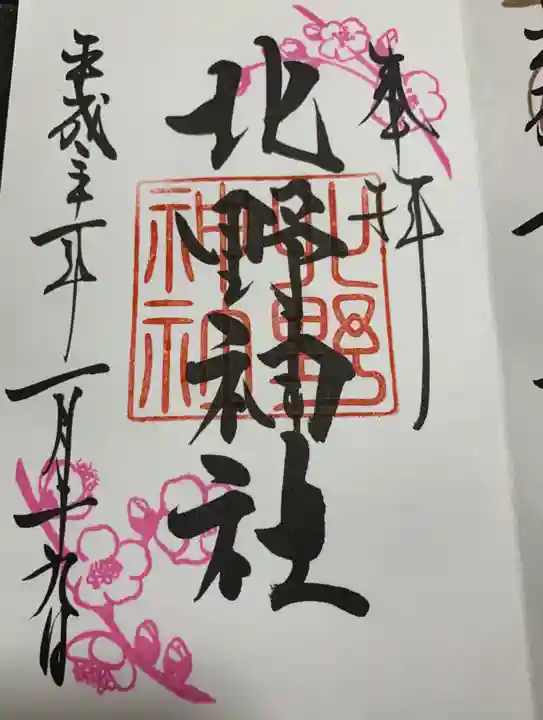 奉拝
北野神社
平成三十一年一月十九日
北野
神社